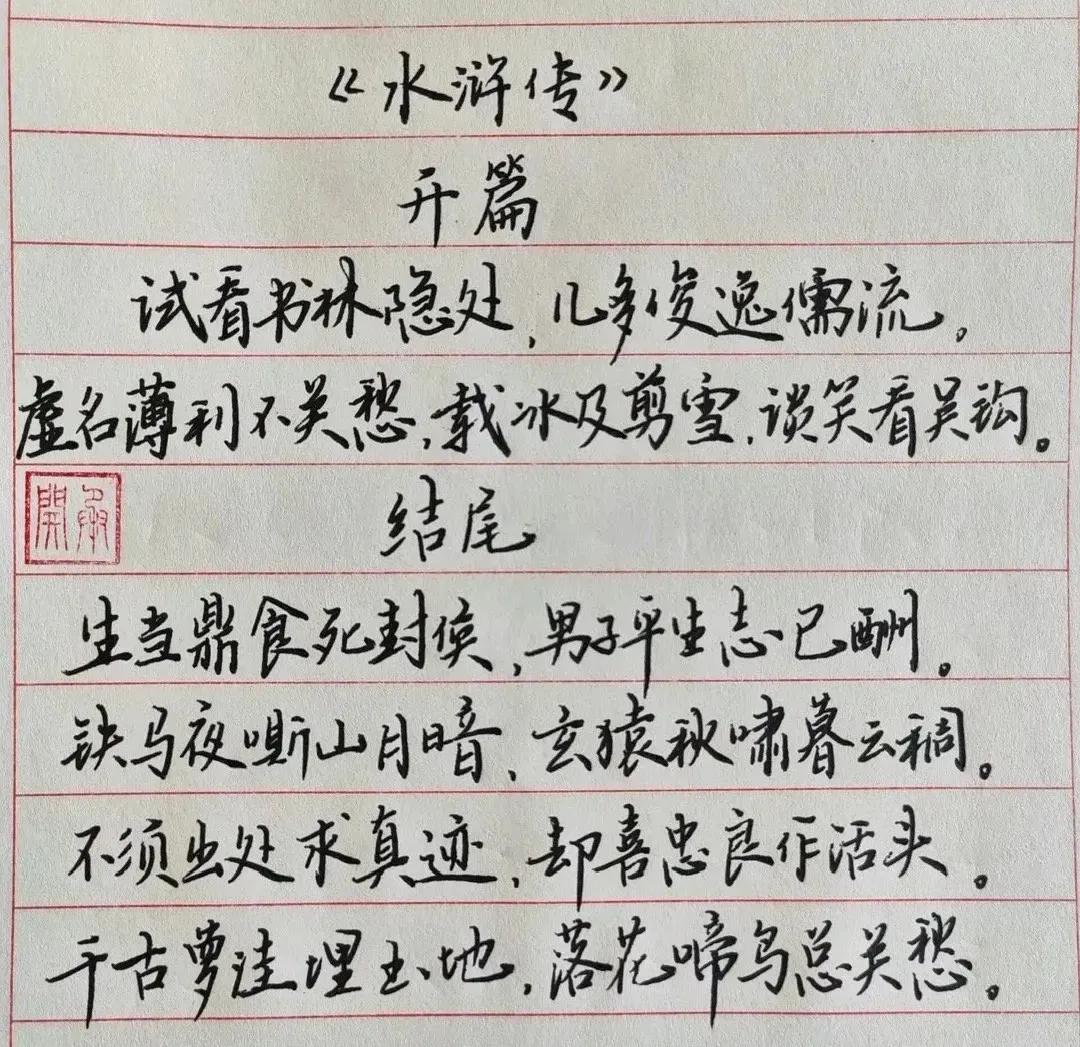 《水浒传》
开篇
试看书林隐处,几多俊逸儒流。
虚名薄利不关愁,载冰及剪雪,谈笑看吴钩。
结尾
生当鼎食死封侯,男子平生志已酬。
铁马夜嘶山月暗,玄猿秋啸暮云稠。
不须出处求真迹,却喜忠良作话头。
千古蓼洼埋玉地,落花啼鸟总关愁。